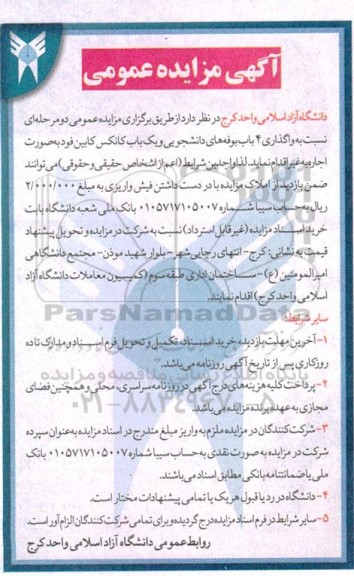 آگهی مزایده عمومی
دانشگاه آزاد اسلامی واحد کرج در نظر دارد از طریق برگزاری مزایده عمومی دو مرحله‌ای
نسبت به واگذاری ۴ باب بوفه‌های دانشجویی و یک باب کانکس کابین فود به صورت
اجاره به غیر اقدام نماید. لذا واجدین شرایط (اعم از اشخاص حقیقی و حقوقی) می‌توانند
ضمن بازدید از املاک مزایده با در دست داشتن فیش واریزی به مبلغ ۲/۰۰۰/۰۰۰
ریال به حساب سیبا شماره ۰۱۰۵۷۱۷۱۰۵۰۰۷ بانک ملی شعبه دانشگاه بابت
خرید اسناد مزایده (غیر قابل استرداد) نسبت به شرکت در مزایده و تحویل پیشنهاد
قیمت به نشانی: کرج - انتهای رجایی شهر - بلوار شهید موذن - مجتمع دانشگاهی
امیرالمومنین (ع) - ساختمان اداری طبقه سوم (کمیسیون معاملات دانشگاه آزاد
اسلامی واحد کرج) اقدام نمایند.
سایر شرایط:
۱- آخرین مهلت بازدید، خرید اسناد، تکمیل و تحویل فرم اسناد و مدارک تا ده
روز کاری پس از تاریخ آگهی روزنامه می‌باشد.
۲- پرداخت کلیه هزینه‌های درج آگهی در روزنامه سراسری، محلی و همچنین فضای
مجازی به عهده برنده مزایده می‌باشد.
۳- شرکت‌کنندگان در مزایده ملزم به واریز مبلغ مندرج در اسناد مزایده به عنوان سپرده
شرکت در مزایده به صورت نقدی به حساب سیبا شماره ۰۱۰۵۷۱۷۱۰۵۰۰۷ بانک
ملی یا ضمانتنامه بانکی مطابق اسناد می‌باشند.
۴- دانشگاه در رد یا قبول هر یک یا تمامی پیشنهادات مختار است.
۵- سایر شرایط در فرم اسناد مزایده درج گردیده و برای تمامی شرکت‌کنندگان الزام آور است.
روابط عمومی دانشگاه آزاد اسلامی واحد کرج
ParsNamadData